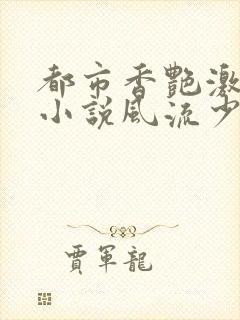 都市香艷激
小説風流少
賈軍龍